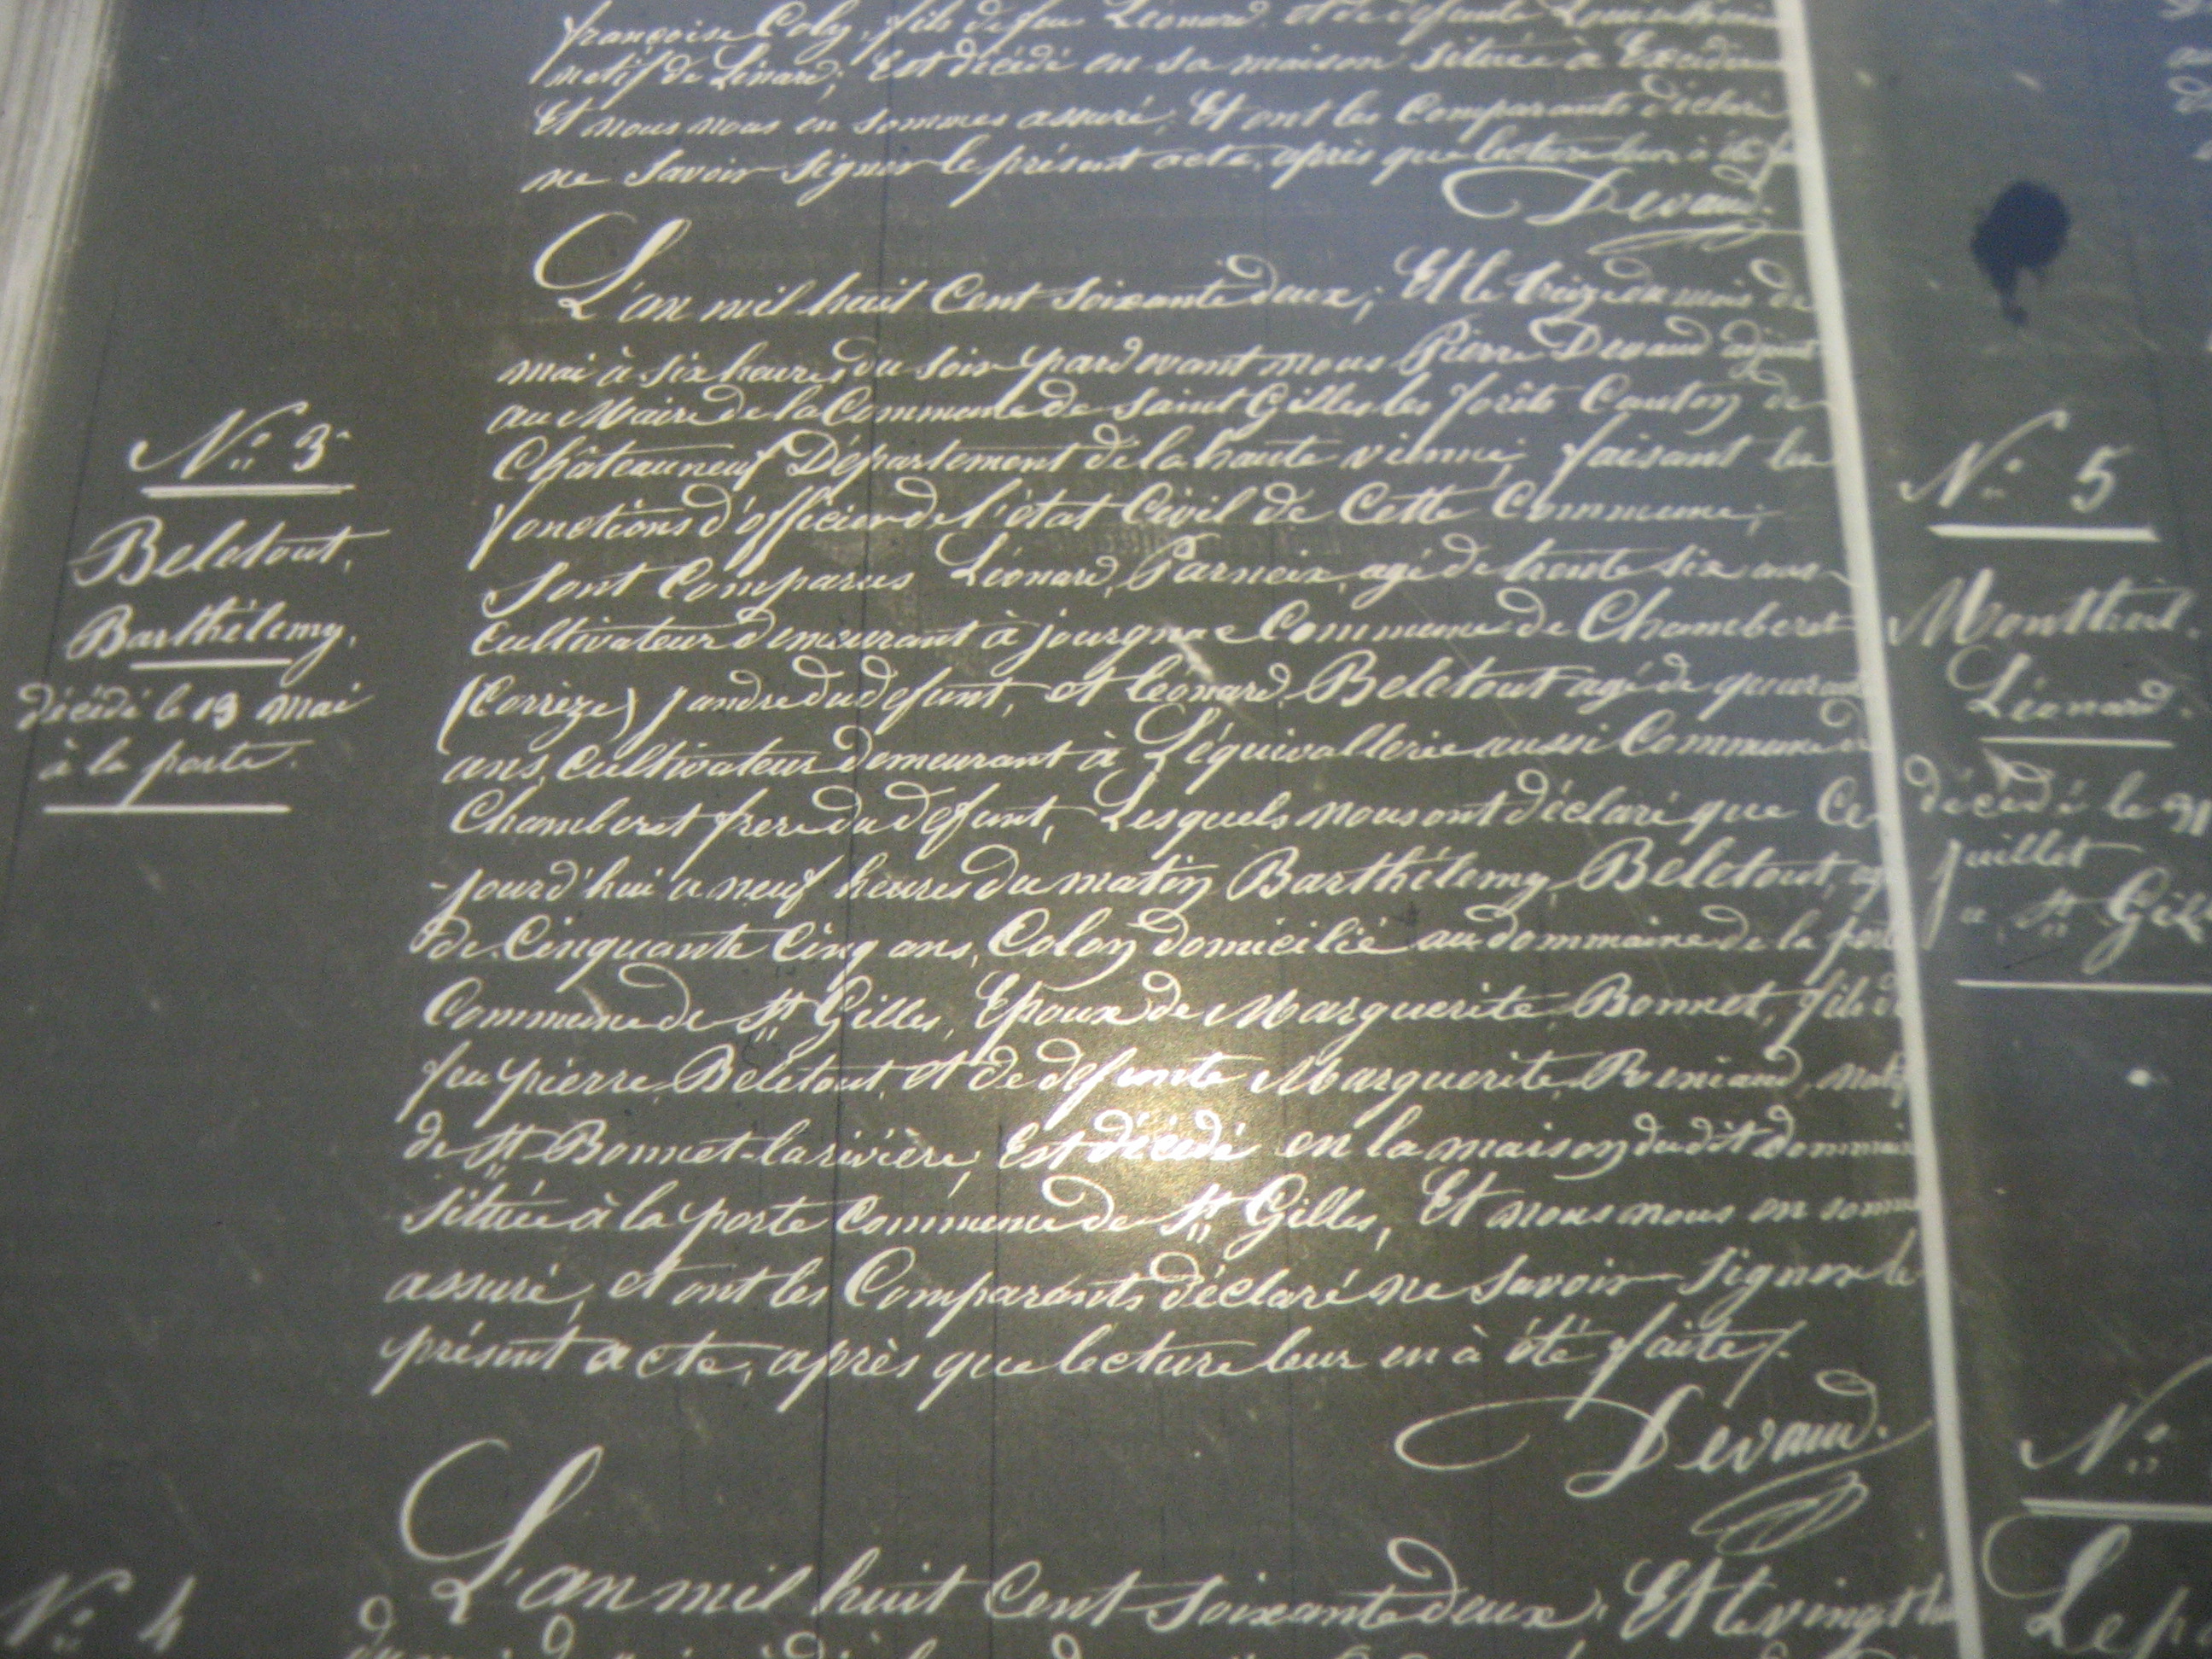 françoise Coly, fils de feu Léonard, et de defunte
natif de Linard; Est décédé en sa maison située à
Et nous nous en sommes assuré, Et ont les Comparants déclaré
ne Savoir Signer le présent acte, après que lecture leur à été
Devaud.
L'an mil huit Cent Soixante deux; Et le treize du mois de
mai à six heures du soir pardevant nous Pierre Devaud adjoint
au Maire de la Commune de Saint Gilles les forêts Canton de
Châteauneuf Département de la haute vienne, faisant les
fonctions d'officier de l'état Civil de Cette Commune;
Sont Comparus Léonard, Parneix, agé de trente six ans
Cultivateur demeurant à jourgnac Commune de Chamberet
(Corrèze) jandre du defunt, et léonard, Beletout agé de quarante
ans, Cultivateur demeurant à Léquivallerie aussi Commune de
Chamberet frere du defunt, Lesquels nous ont déclaré que Ce
-jourd'hui a neuf heures du matin Barthélemy, Beletout, agé
de Cinquante Cinq ans, Colon domicilié au dommaine de la porte
Commune de St Gilles, Epoux de Marguerite, Bonnet, fils de
feu pierre, Beletout, et de defunte Marguerite, natif
de St Bonnet-larivière, Est décédé en la maison dudit dommaine
Située à la porte Commune de St Gilles, Et nous nous en somme
assuré, et ont les Comparants déclaré ne Savoir Signer le
présent acte, après que lecture leur en à été faite.
Devaud.
L'an mil huit Cent Soixante deux; Et le vingt
N° 3
Beletout,
Barthélemy,
décédé le 13 mai
à la porte.
N° 4
N° 5
Léonard.
décédé le
juillet
a St Gil
N°
Lep